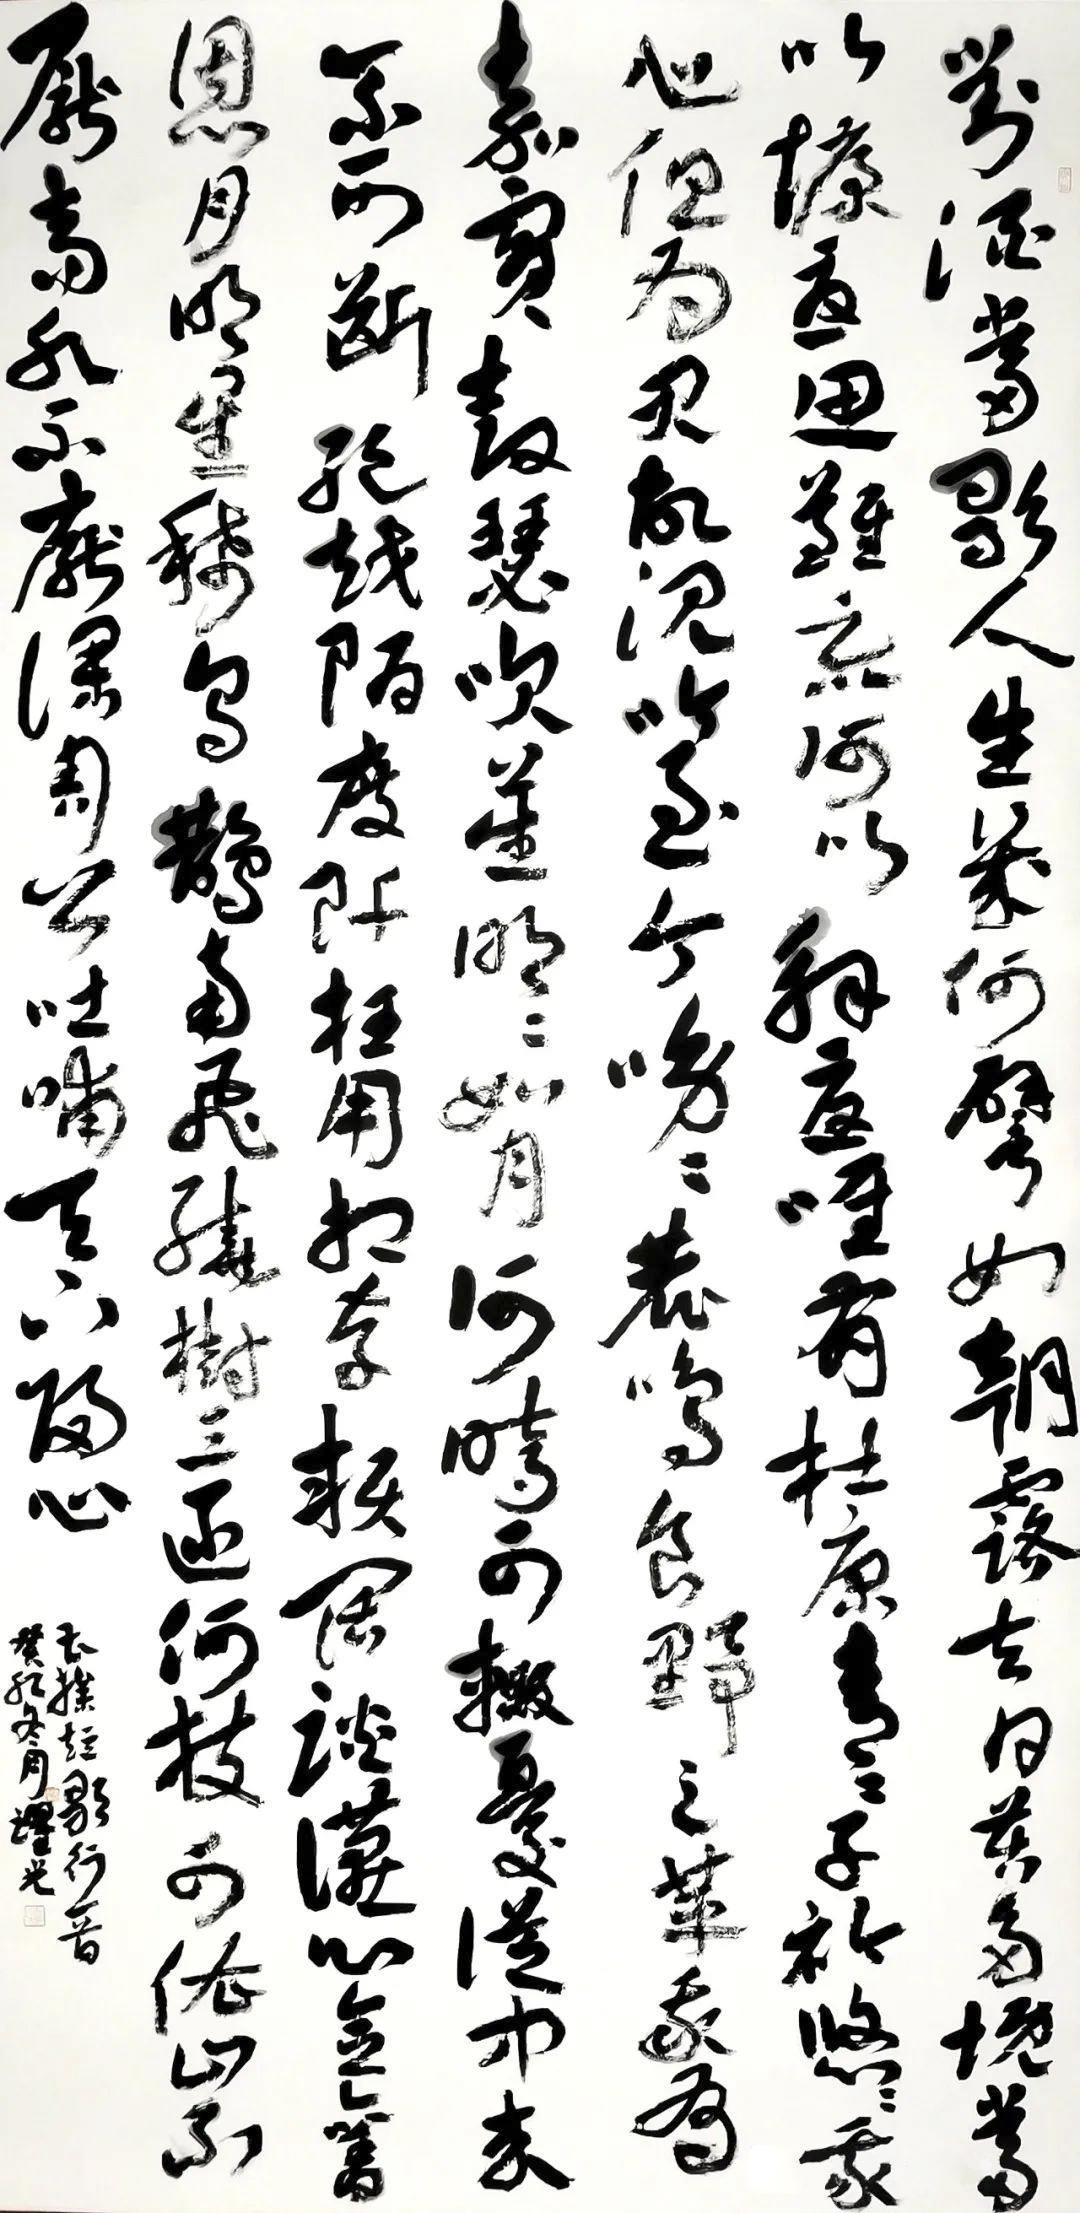 對酒當歌人生幾何譬如朝露去日苦多慨當
以慷憂思難忘何以解憂唯有杜康青〻子衿悠〻我
心但為君故沉吟至今呦〻鹿鳴食野之苹我有
嘉賓鼓瑟吹笙明〻如月何時可輟憂從中來
不可斷絕越陌度阡枉用相存契闊談讌心念舊
恩月明星稀烏鵲南飛繞樹三匝何枝可依山不
厭高水不厭深周公吐哺天下歸心
曹操短歌行一首
癸卯冬月耀光